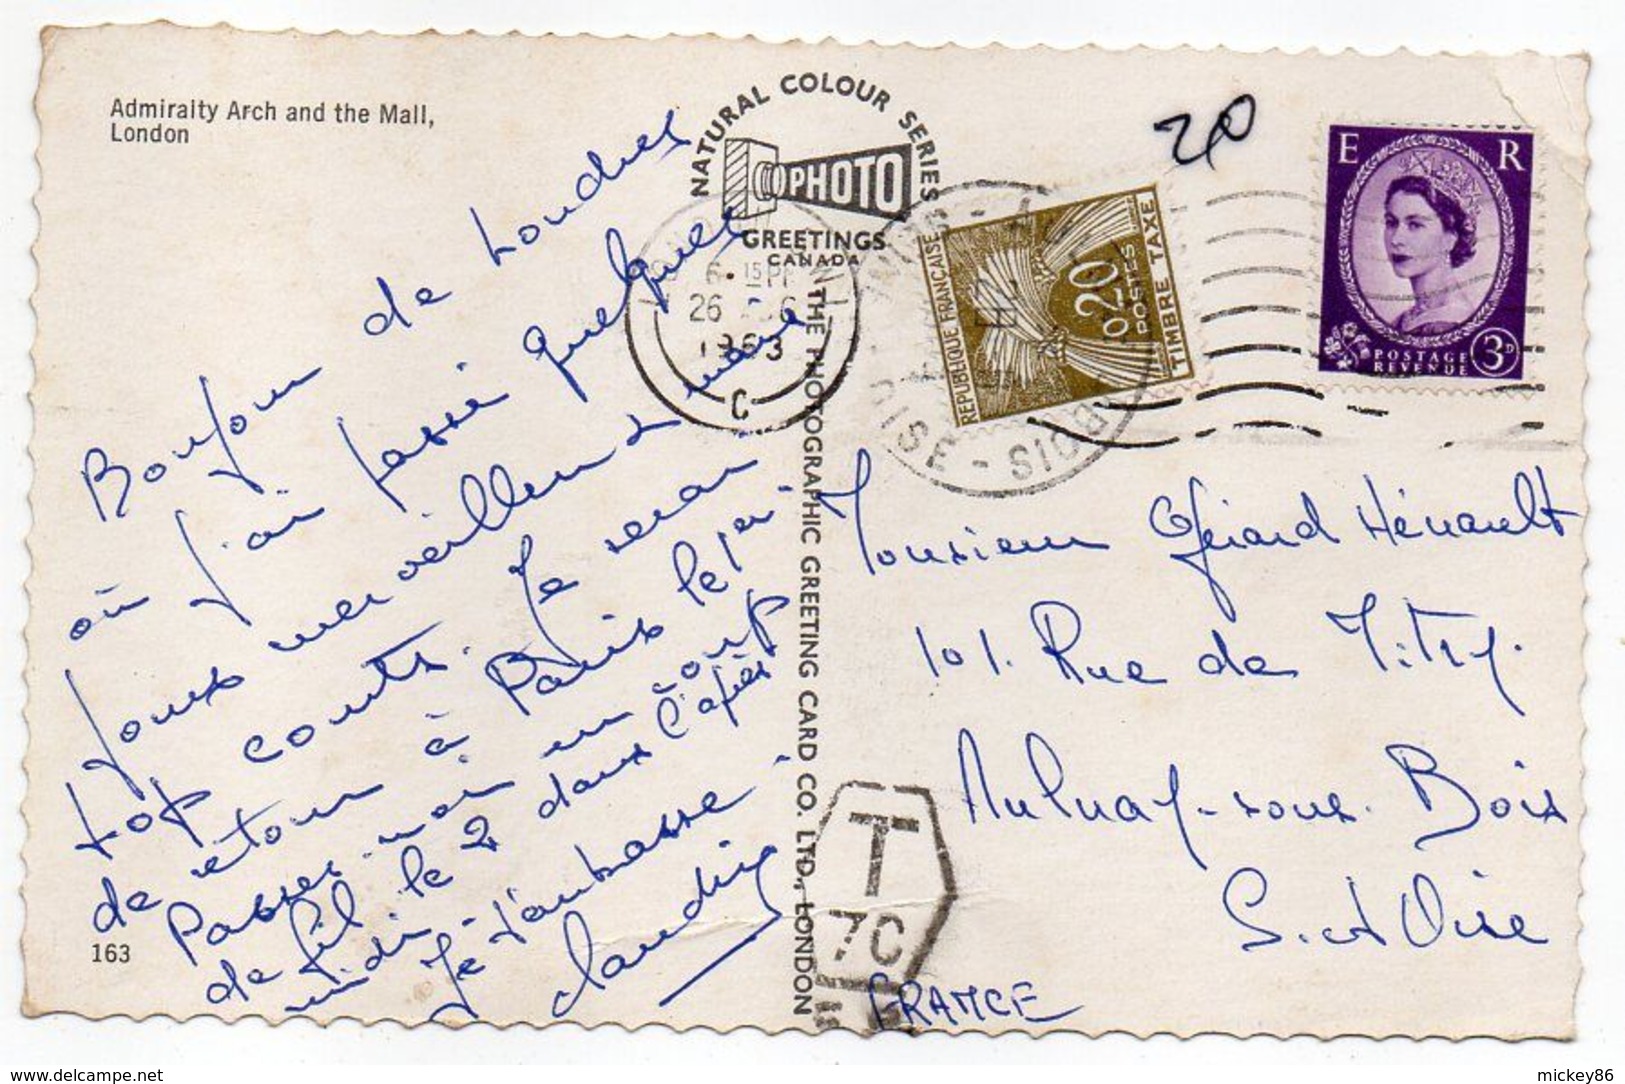 Admiralty Arch and the Mall,
London
NATURAL COLOUR SERIES
PHOTO
GREETINGS
CANADA
THE PHOTOGRAPHIC GREETING CARD CO. LTD., LONDON
Bonjour de Londres
où j'ai passé quelques
jours merveilleux
trop courts. Je serai
de retour à Paris le
Passez-moi un coup
de fil le 2 dans l'après
midi.
Je t'embrasse
163
6. 15PM
26
1963
C
20
REPUBLIQUE FRANÇAISE
0,20
POSTES
TIMBRE TAXE
OISE - BOIS
E R
POSTAGE
REVENUE
3D
Monsieur Gérard Hénault
101. Rue de Mitry.
Aulnay-sous-Bois
S. et Oise
FRANCE
T
7C
delcampe.net
mickey86